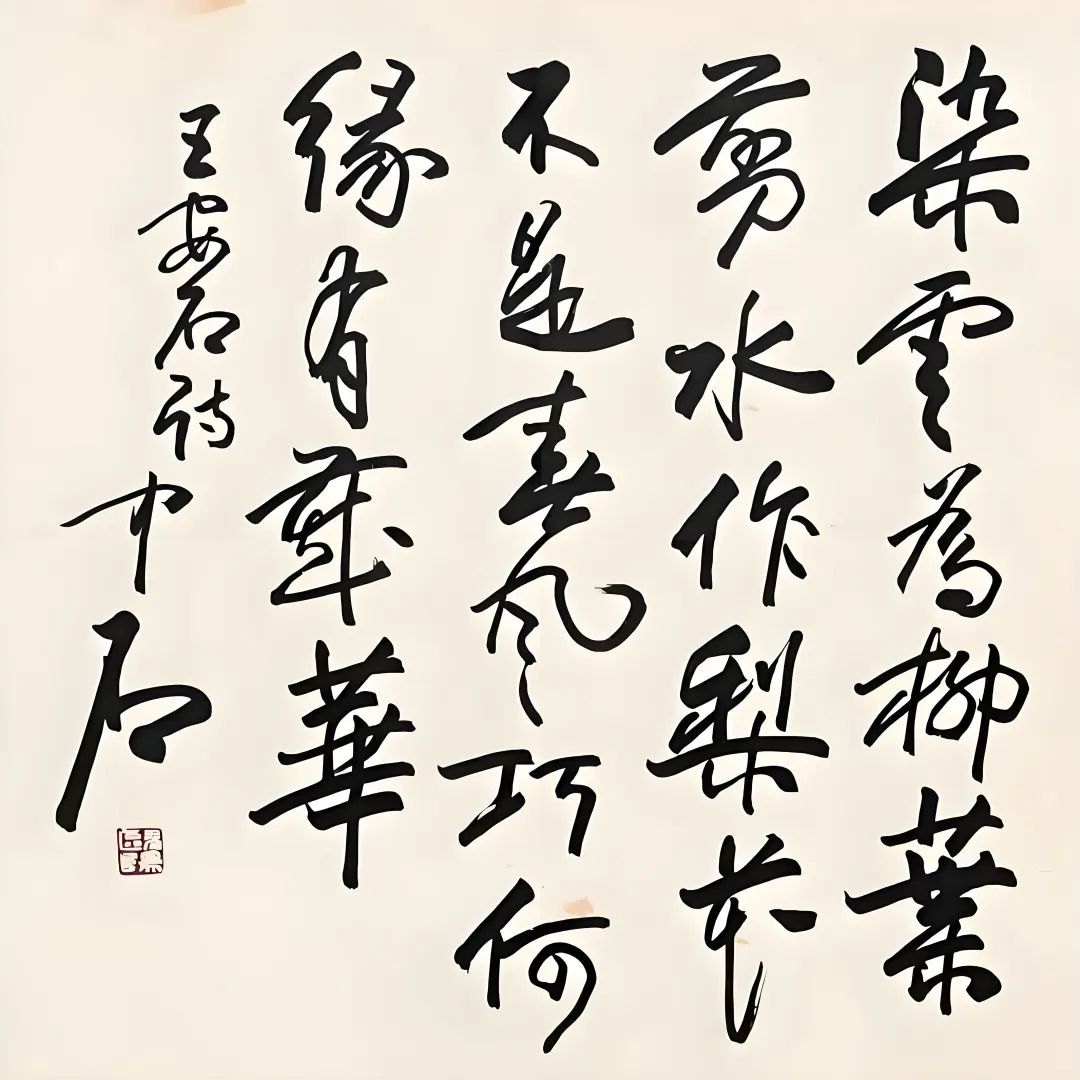 染雲為柳葉
剪水作梨花
不是春風巧何
緣有歲華
王安石詩中石